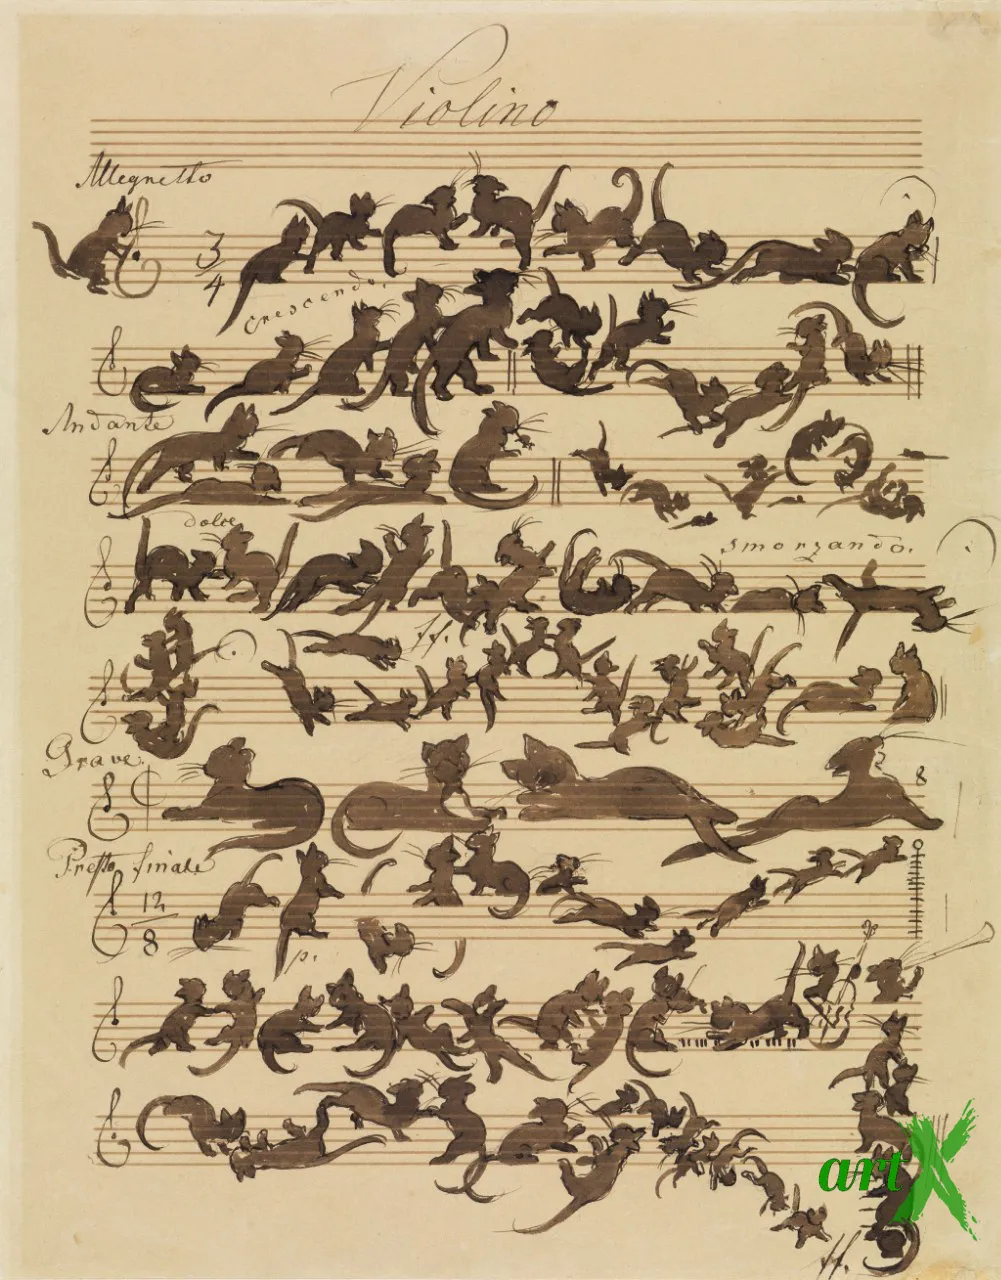 Violino
Allegretto
3
4
Crescendo.
Andante
dolce
smorzando.
ff.
Grave.
8
Presto finale
12
8
p.
artX
ff.